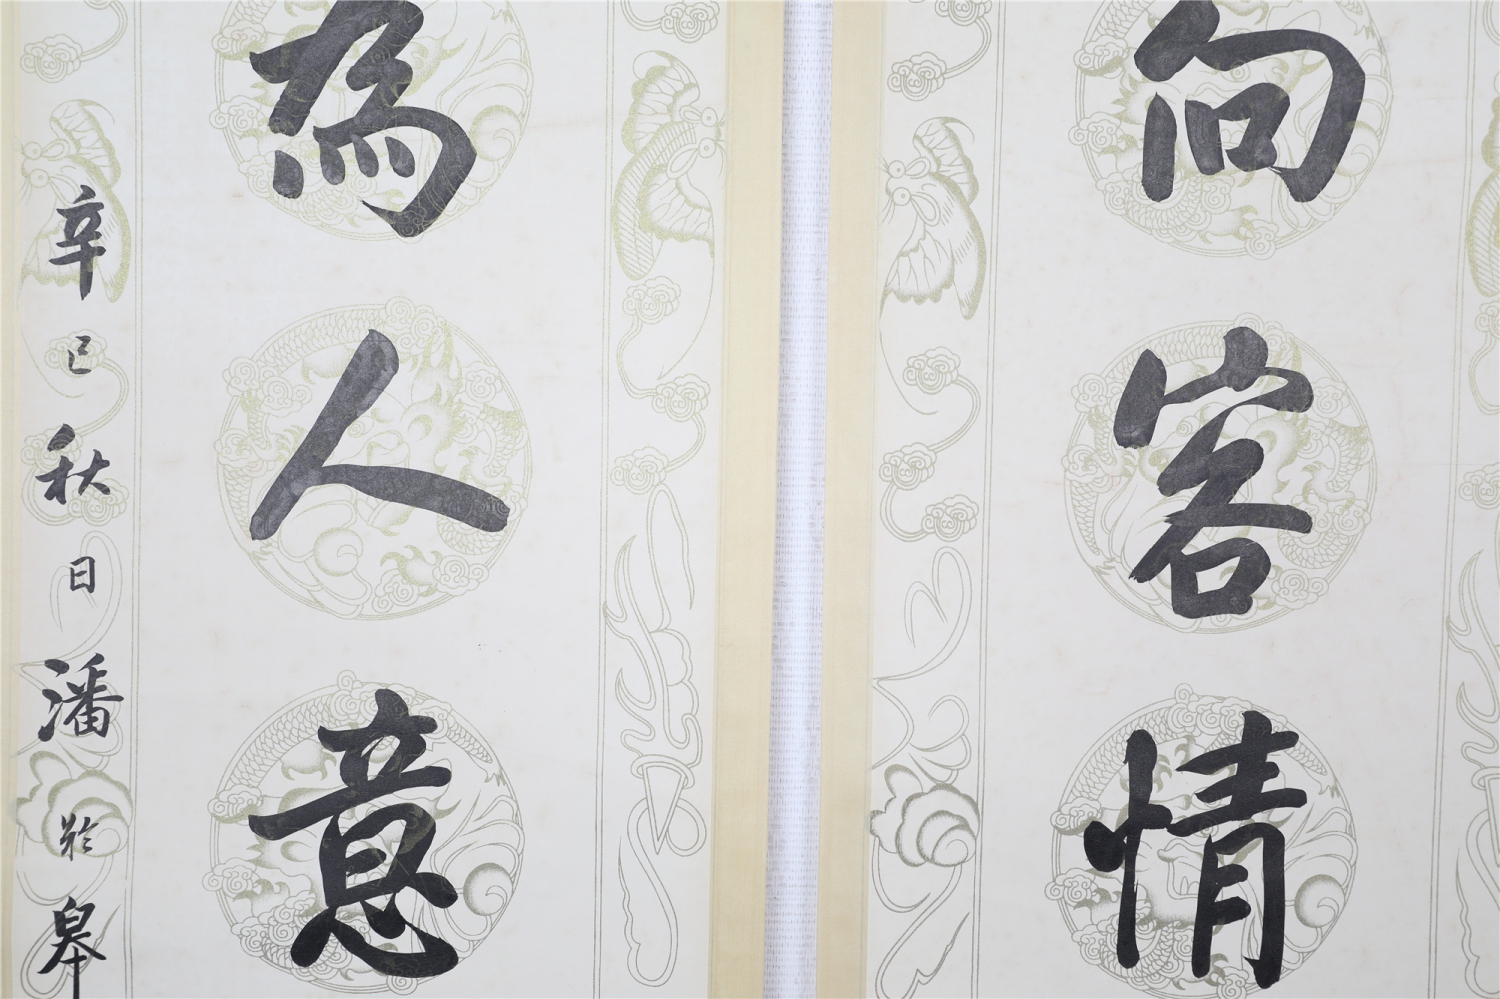 向客情
為人意
辛巳秋日潘於皋